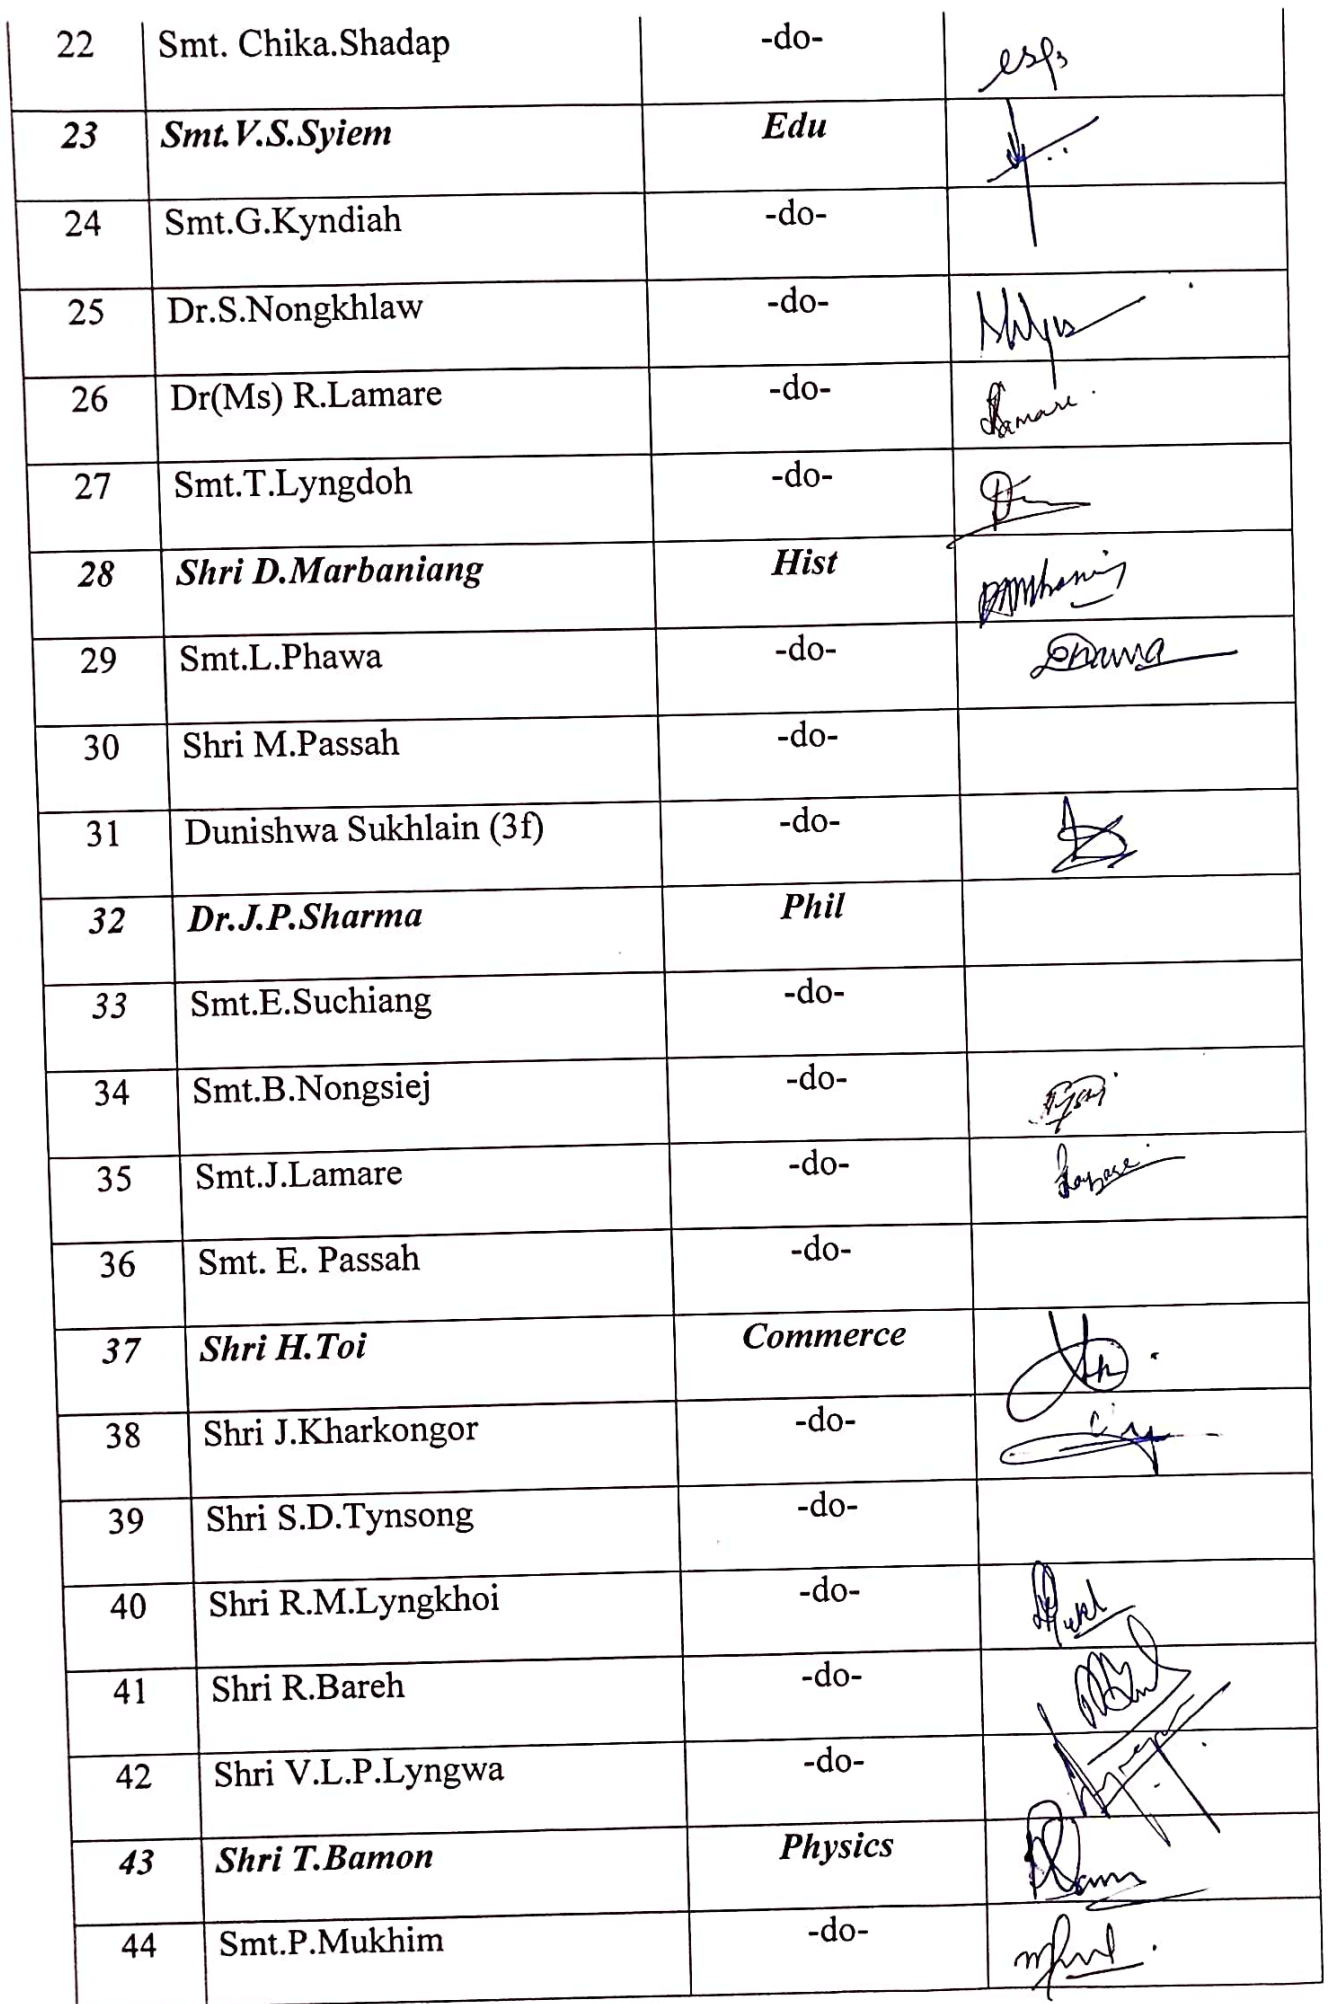 22 Smt. Chika.Shadap -do-
23 Smt.V.S.Syiem Edu
24 Smt.G.Kyndiah -do-
25 Dr.S.Nongkhlaw -do-
26 Dr(Ms) R.Lamare -do-
27 Smt.T.Lyngdoh -do-
28 Shri D.Marbaniang Hist
29 Smt.L.Phawa -do-
30 Shri M.Passah -do-
31 Dunishwa Sukhlain (3f) -do-
32 Dr.J.P.Sharma Phil
33 Smt.E.Suchiang -do-
34 Smt.B.Nongsiej -do-
35 Smt.J.Lamare -do-
36 Smt. E. Passah -do-
37 Shri H.Toi Commerce
38 Shri J.Kharkongor -do-
39 Shri S.D.Tynsong -do-
40 Shri R.M.Lyngkhoi -do-
41 Shri R.Bareh -do-
42 Shri V.L.P.Lyngwa -do-
43 Shri T.Bamon Physics
44 Smt.P.Mukhim -do-